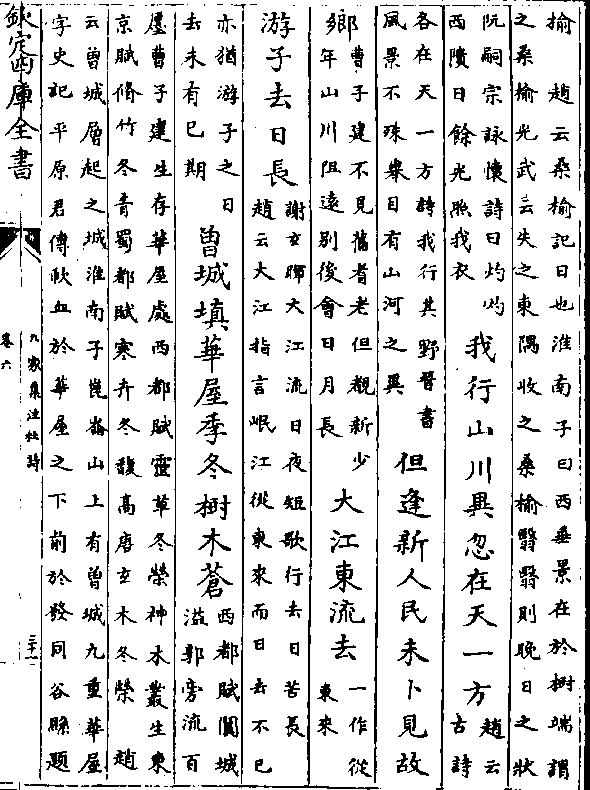 榆　趙云桑榆記日也淮南子曰西垂景在於樹端謂
之桑榆光武云失之東隅收之桑榆翳翳則晚日之狀
阮嗣宗詠懷詩曰灼灼
西隤日餘光照我衣
我行山川異忽在天一方
趙云
古詩
各在天一方詩我行其野晉書
風景不殊舉目有山河之異
但逢新人民未卜見故
鄉
曹子建不見舊耆老但覩新少
年山川阻遠別後會日月長
大江東流去
一作從
東來
游子去日長
謝玄暉大江流日夜短歌行去日苦長
趙云大江指言岷江從東來而日去不已
亦猶游子之日
去未有已期
曾城填華屋季冬樹木蒼
西都賦闐城
溢郭旁流百
廛曹子建生存華屋處西都賦靈草冬榮神木叢生東
京賦脩竹冬青蜀都賦寒卉冬馥高唐玄木冬榮　趙
云曾城層起之城淮南子崑崙山上有曾城九重華屋
字史記平原君傳歃血於華屋之下前於發同谷縣題
欽定四庫全書
九家集注杜詩
卷六
三十一